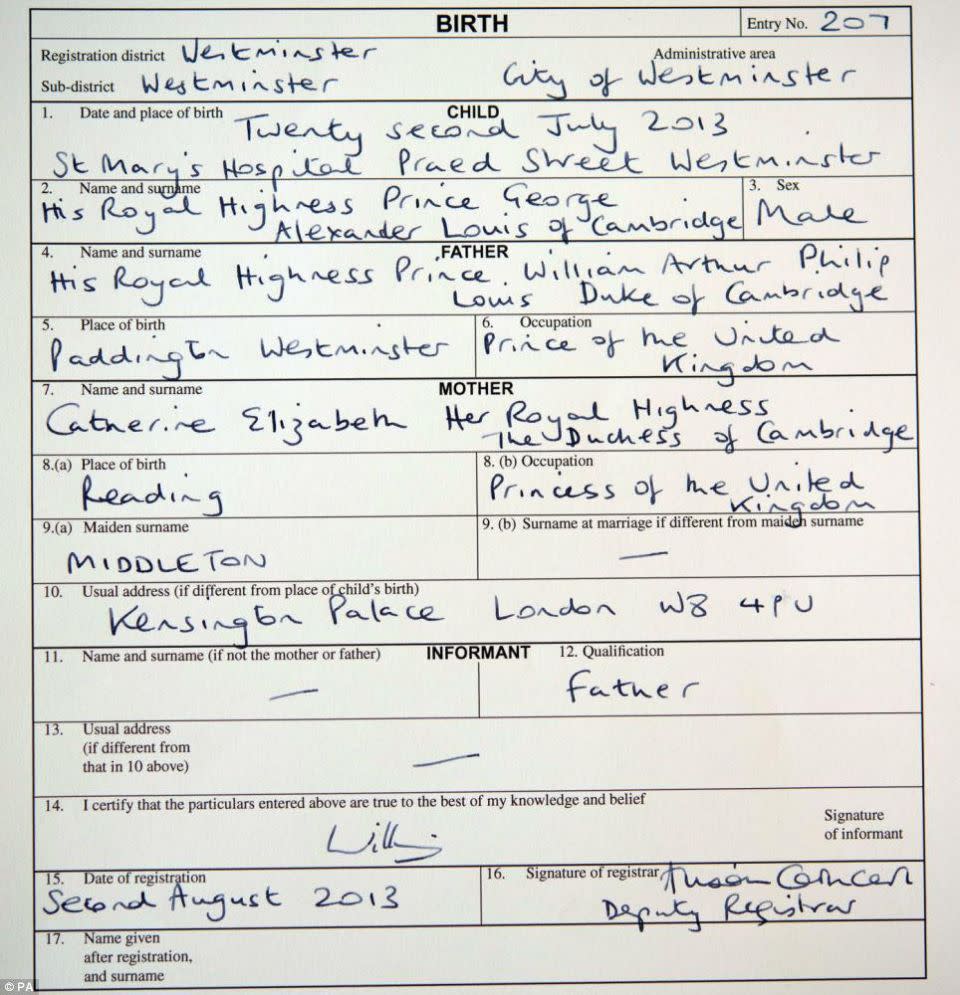 BIRTH
Entry No. 207
Registration district Westminster
Administrative area
Sub-district Westminster
City of Westminster
1. Date and place of birth
CHILD
Twenty second July 2013
St Mary's Hospital Praed Street Westminster
2. Name and surname
His Royal Highness Prince George
Alexander Louis of Cambridge
3. Sex
Male
4. Name and surname
FATHER
His Royal Highness Prince William Arthur Philip
Louis Duke of Cambridge
5. Place of birth
Paddington Westminster
6. Occupation
Prince of the United
Kingdom
7. Name and surname
MOTHER
Catherine Elizabeth Her Royal Highness
The Duchess of Cambridge
8.(a) Place of birth
Reading
8. (b) Occupation
Princess of the United
Kingdom
9.(a) Maiden surname
MIDDLETON
9. (b) Surname at marriage if different from maiden surname
—
10. Usual address (if different from place of child's birth)
Kensington Palace London W8 4PU
11. Name and surname (if not the mother or father)
INFORMANT
—
12. Qualification
Father
13. Usual address
(if different from
that in 10 above)
—
14. I certify that the particulars entered above are true to the best of my knowledge and belief
Signature
of informant
15. Date of registration
Second August 2013
16. Signature of registrar
Deputy Registrar
17. Name given
after registration,
and surname
© PA